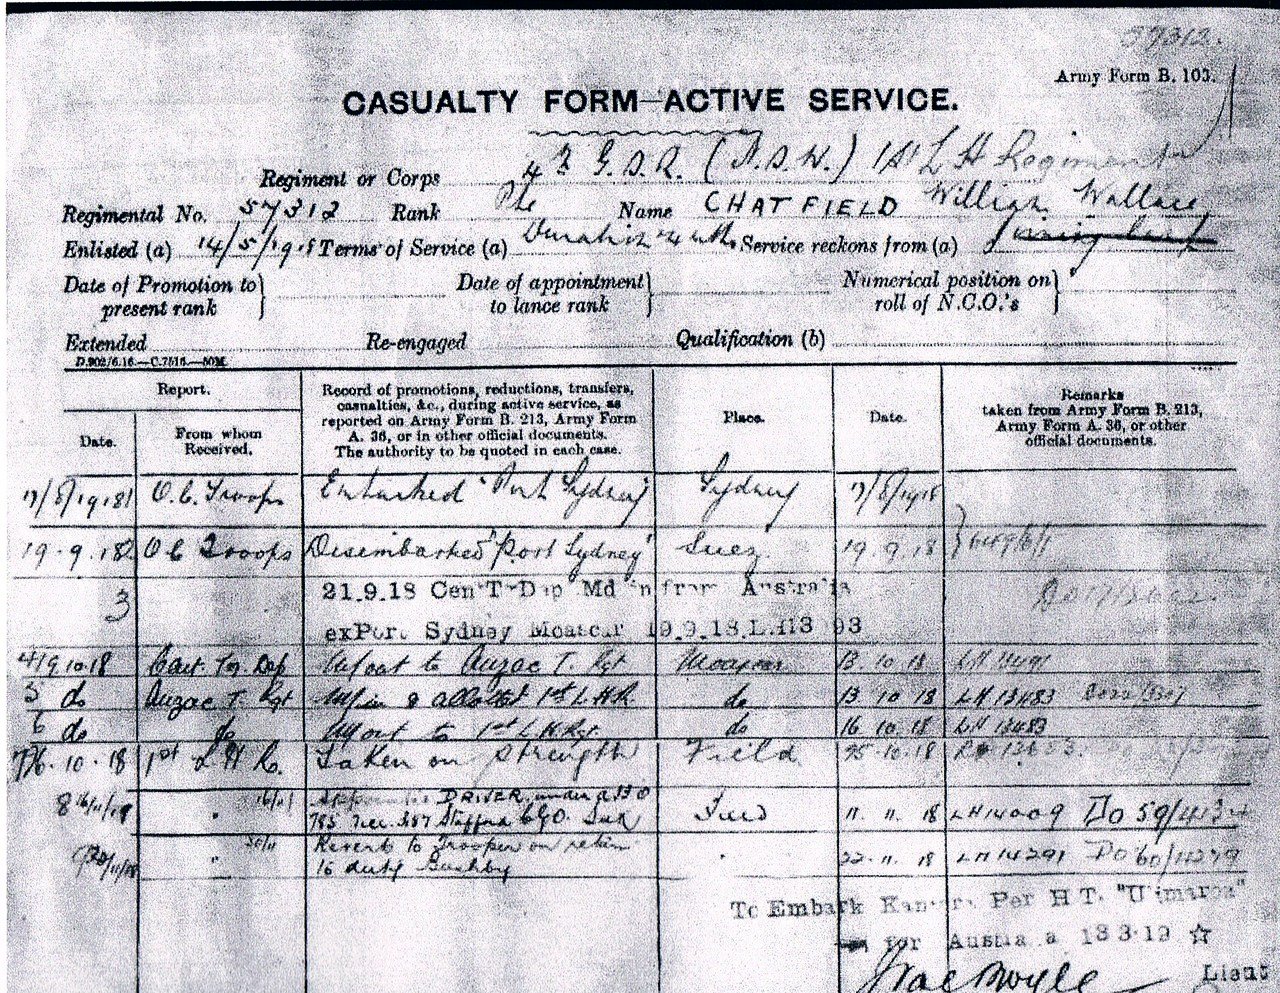 57312.
Army Form B. 103.
CASUALTY FORM—ACTIVE SERVICE.
Regiment or Corps 4th G.S.R. (N.S.W.) 1st L H Regiment
Regimental No. 57312 Rank Pte Name CHATFIELD William Wallace
Enlisted (a) 14/5/1918 Terms of Service (a) Duration Service reckons from (a)
Date of Promotion to present rank } Date of appointment to lance rank } Numerical position on roll of N.C.O.'s }
Extended Re-engaged Qualification (b)
D.902/6.16.—C.7516.—50M.
Report.
Date.
From whom Received.
Record of promotions, reductions, transfers,
casualties, &c., during active service, as
reported on Army Form B. 213, Army Form
A. 36, or in other official documents.
The authority to be quoted in each case.
Place.
Date.
Remarks
taken from Army Form B. 213,
Army Form A. 36, or other
official documents.
17/8/1918 1 O.C. Troops Embarked "Port Sydney" Sydney 17/8/1918
19.9.18 2 O C Troops Disembarked "Port Sydney" Suez 19.9.18
3 21.9.18 Cen T Dep Md in from Australia
ex Port Sydney Moascar 19.9.18. L.H13 93
4 19.10.18 M/out to Anzac T. Rgt Moascar 13.10.18 LH 13491
5 do Anzac T. Rgt M/in & allotted 1st L.H.R. do 13 10 18 LH 13483
6 do do M/out to 1st L.H.Rgt do 16 10.18 LH 13483
7 26.10.18 1st L H R. Taken on strength Field 25.10.18
8 16/11/18 " 16/11 DRIVER under A.F.O
Field 11. 11. 18 LH 14009 Do 59/4134
" 30/11 Revert to Trooper on return
to duty 22.11.18 LH 14291 Do 60/
To Embark Kantara Per H T. "Ulimaroa"
for Australia 13 3.19 ☆
Lieut